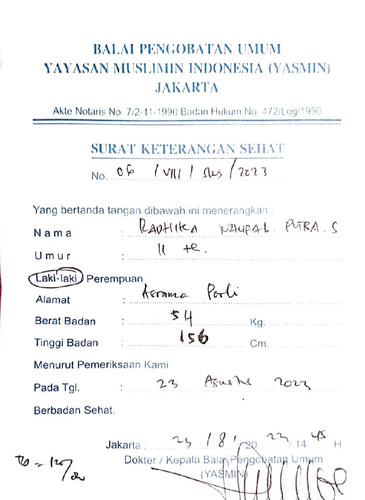 BALAI PENGOBATAN UMUM
YAYASAN MUSLIMIN INDONESIA (YASMIN)
JAKARTA
Akte Notaris No. 7/2-11-1990 Badan Hukum No. 472/Leg/1990
SURAT KETERANGAN SEHAT
No. 06 / VIII / /2023
Yang bertanda tangan dibawah ini menerangkan :
Nama : RADHIKA NAUFAL PUTRA. S
Umur : 11
Laki-laki / Perempuan
Alamat : Asrama
Berat Badan : 54 Kg.
Tinggi Badan : 156 Cm.
Menurut Pemeriksaan Kami
Pada Tgl. : 23 Agustus 2023
Berbadan Sehat.
Jakarta : 23 / 8 / 20 23 14 45 H
Dokter / Kepala Balai Pengobatan Umum
(YASMIN)